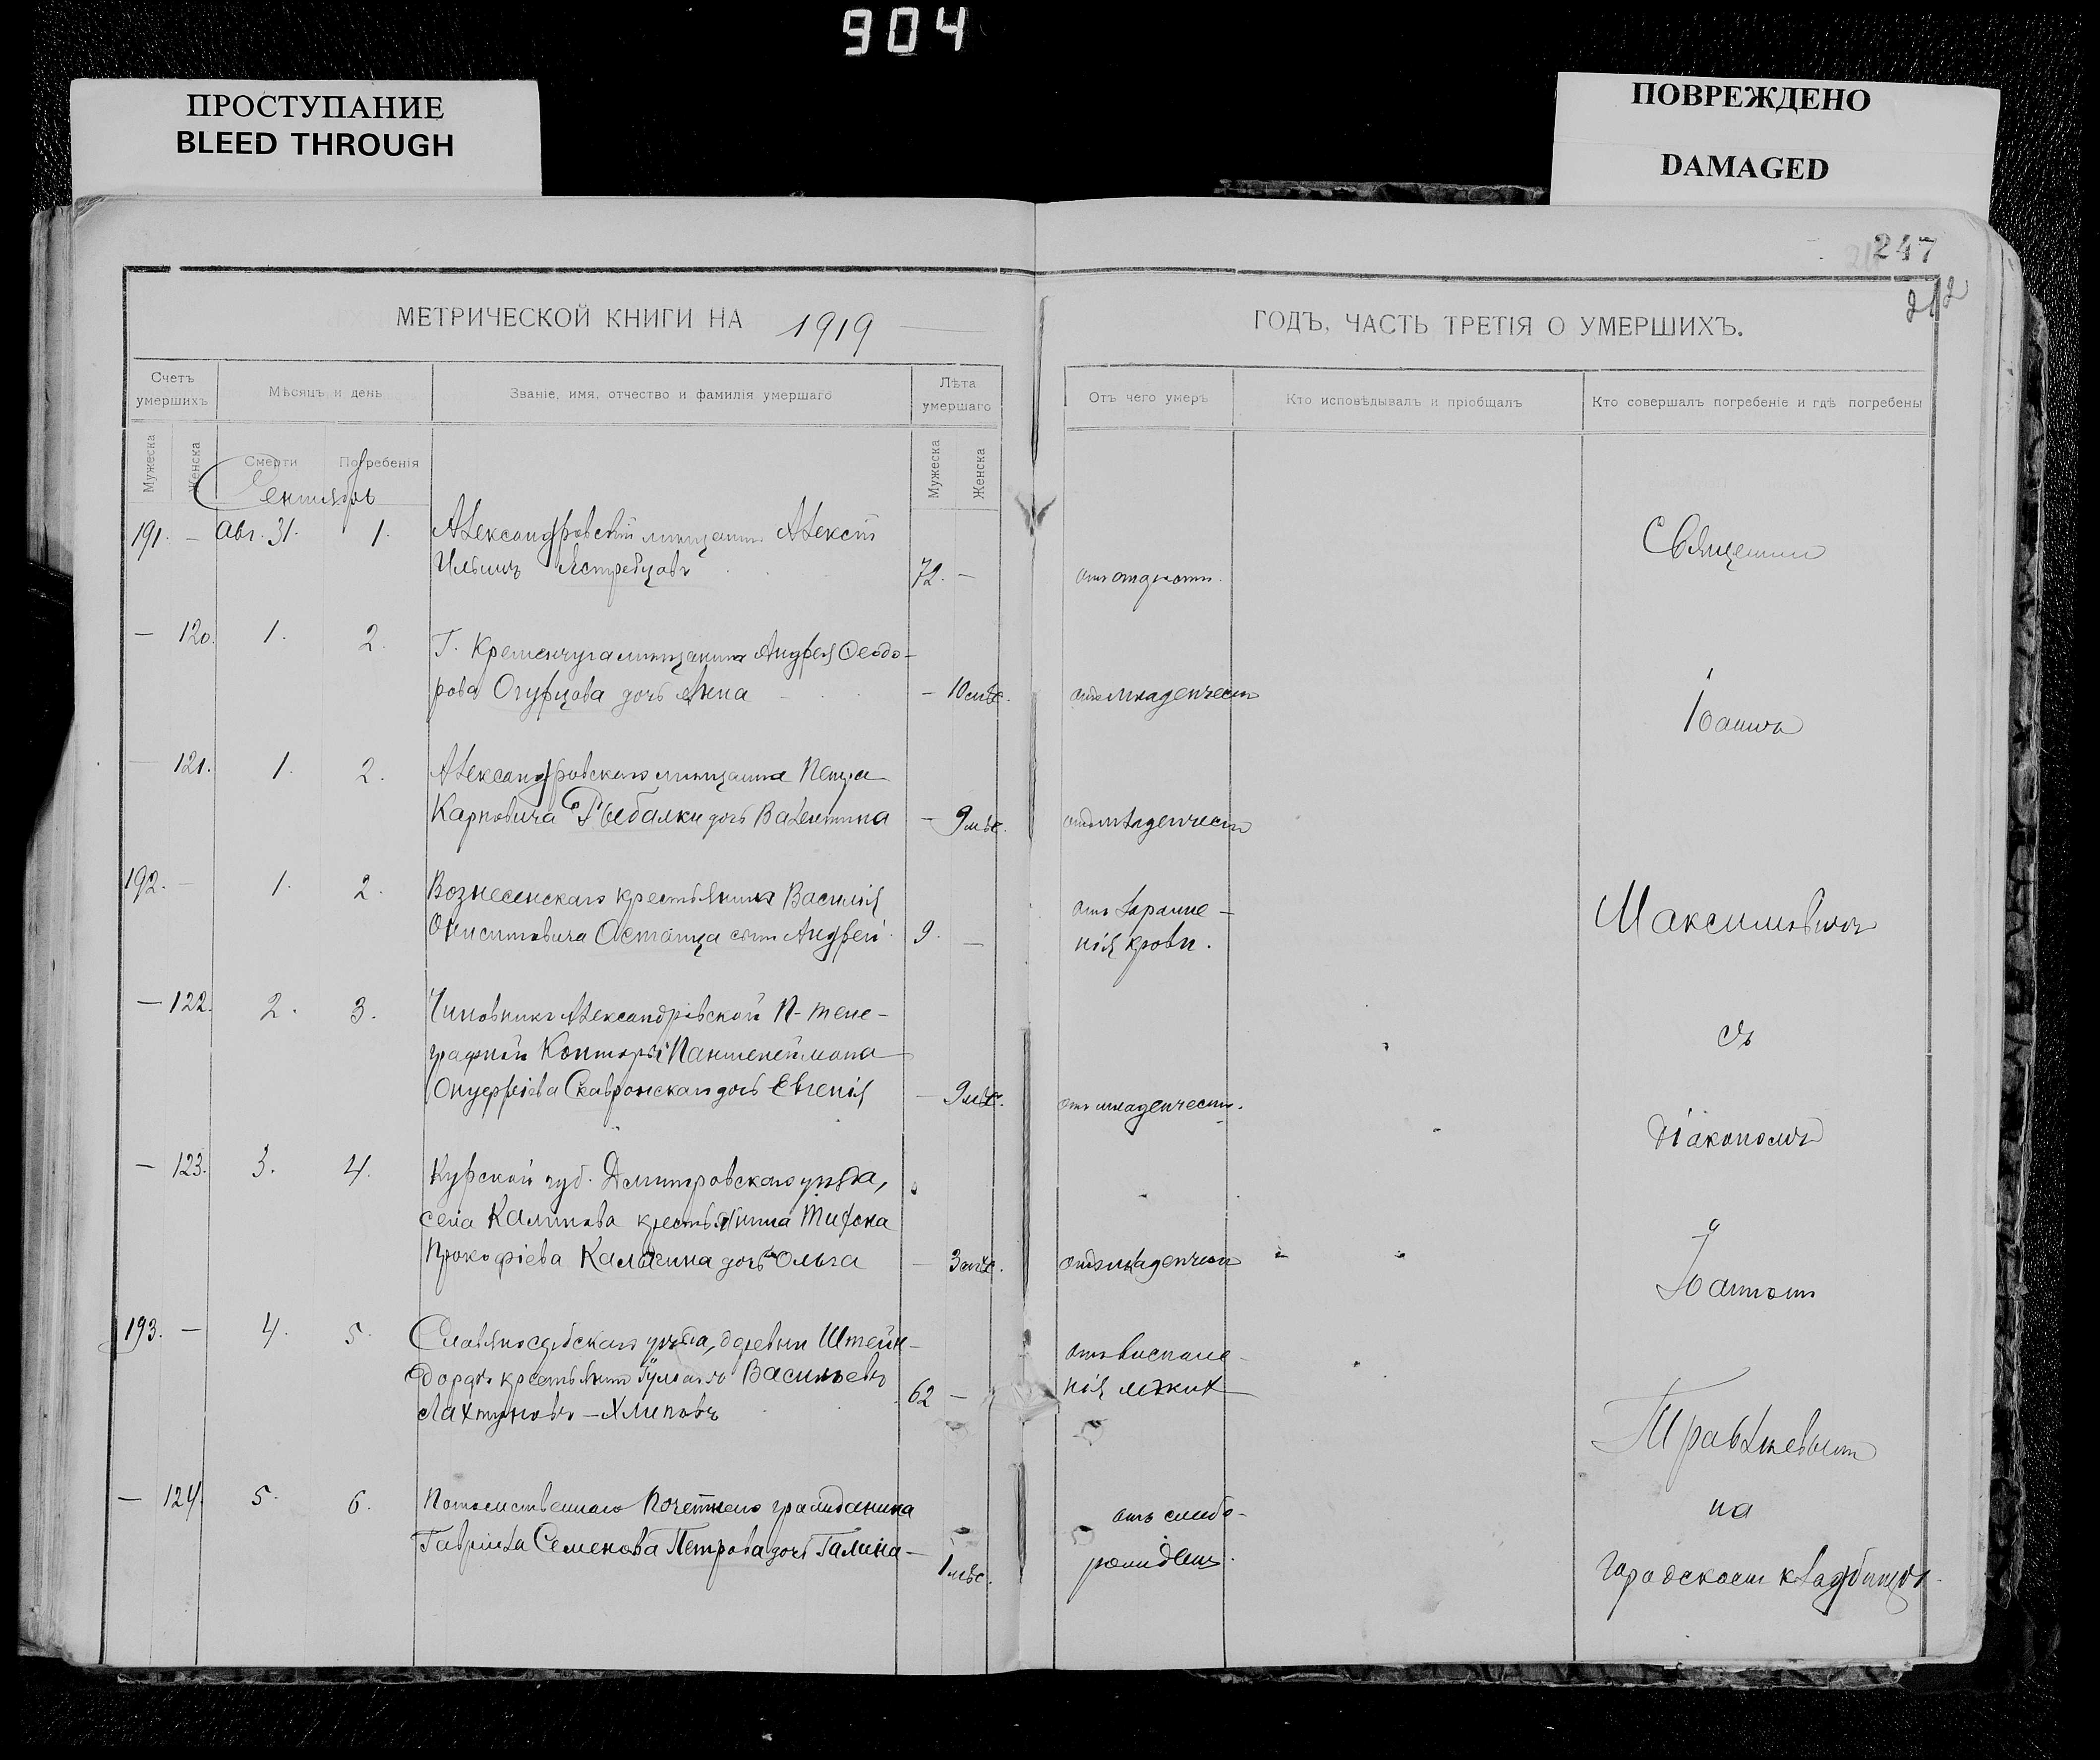 904
ПРОСТУПАНИЕ
BLEED THROUGH
ПОВРЕЖДЕНО
DAMAGED
247
212
МЕТРИЧЕСКОЙ КНИГИ НА 1919
ГОДЪ, ЧАСТЬ ТРЕТІЯ О УМЕРШИХЪ.
Счетъ умершихъ
Мѣсяцъ и день
Званіе, имя, отчество и фамилія умершаго
Лѣта умершаго
Отъ чего умеръ
Кто исповѣдывалъ и пріобщалъ
Кто совершалъ погребеніе и гдѣ погребены
Мужеска
Женска
Смерти
Погребенія
Мужеска
Женска
Сентябрь
191. — Авг. 31. 1. Александровскій мѣщанинъ Алексѣй
Ильинъ Ястребцовъ 72. —
— 120. 1. 2. Г. Кременчуга мѣщанина Андрея Ѳеодо-
рова Огурцова дочь Анна — 10 мѣс. отъ младенческ
— 121. 1. 2. Александровскаго мѣщанина Петра
Карповича Рыбалки дочь Валентина — 9 мѣс. отъ младенческ
192. — 1. 2. Вознесенскаго крестьянина Василія
Онисимовича Остапца сынъ Андрей 9. — отъ зараже-
нія крови.
— 122. 2. 3. Чиновника Александровской П-теле-
графной Конторы Пантелеймона
Онуфріева Скавронскаго дочь Евгенія — 9 мѣс. отъ младенческ.
— 123. 3. 4. Курской губ. Дмитровскаго уѣзда,
села Калинова крестьянина Тихона
Прокофіева Калагина дочь Ольга — 3 мѣс. отъ младенческ
193. — 4. 5. Славяносербскаго уѣзда, деревни Штейн-
дорфъ крестьянинъ Васильевъ
Лахтуновъ — Хлиповъ 62 — отъ воспале-
нія легкихъ
— 124. 5. 6. Потомственнаго Почетнаго гражданина
Гавріила Семенова Петрова дочь Галина — 1 мѣс. отъ слабо-
рожден.
Священник
Іоаннъ
Максимовичъ
съ
діакономъ
Іоанномъ
Травлевымъ
на
городскомъ кладбищѣ.